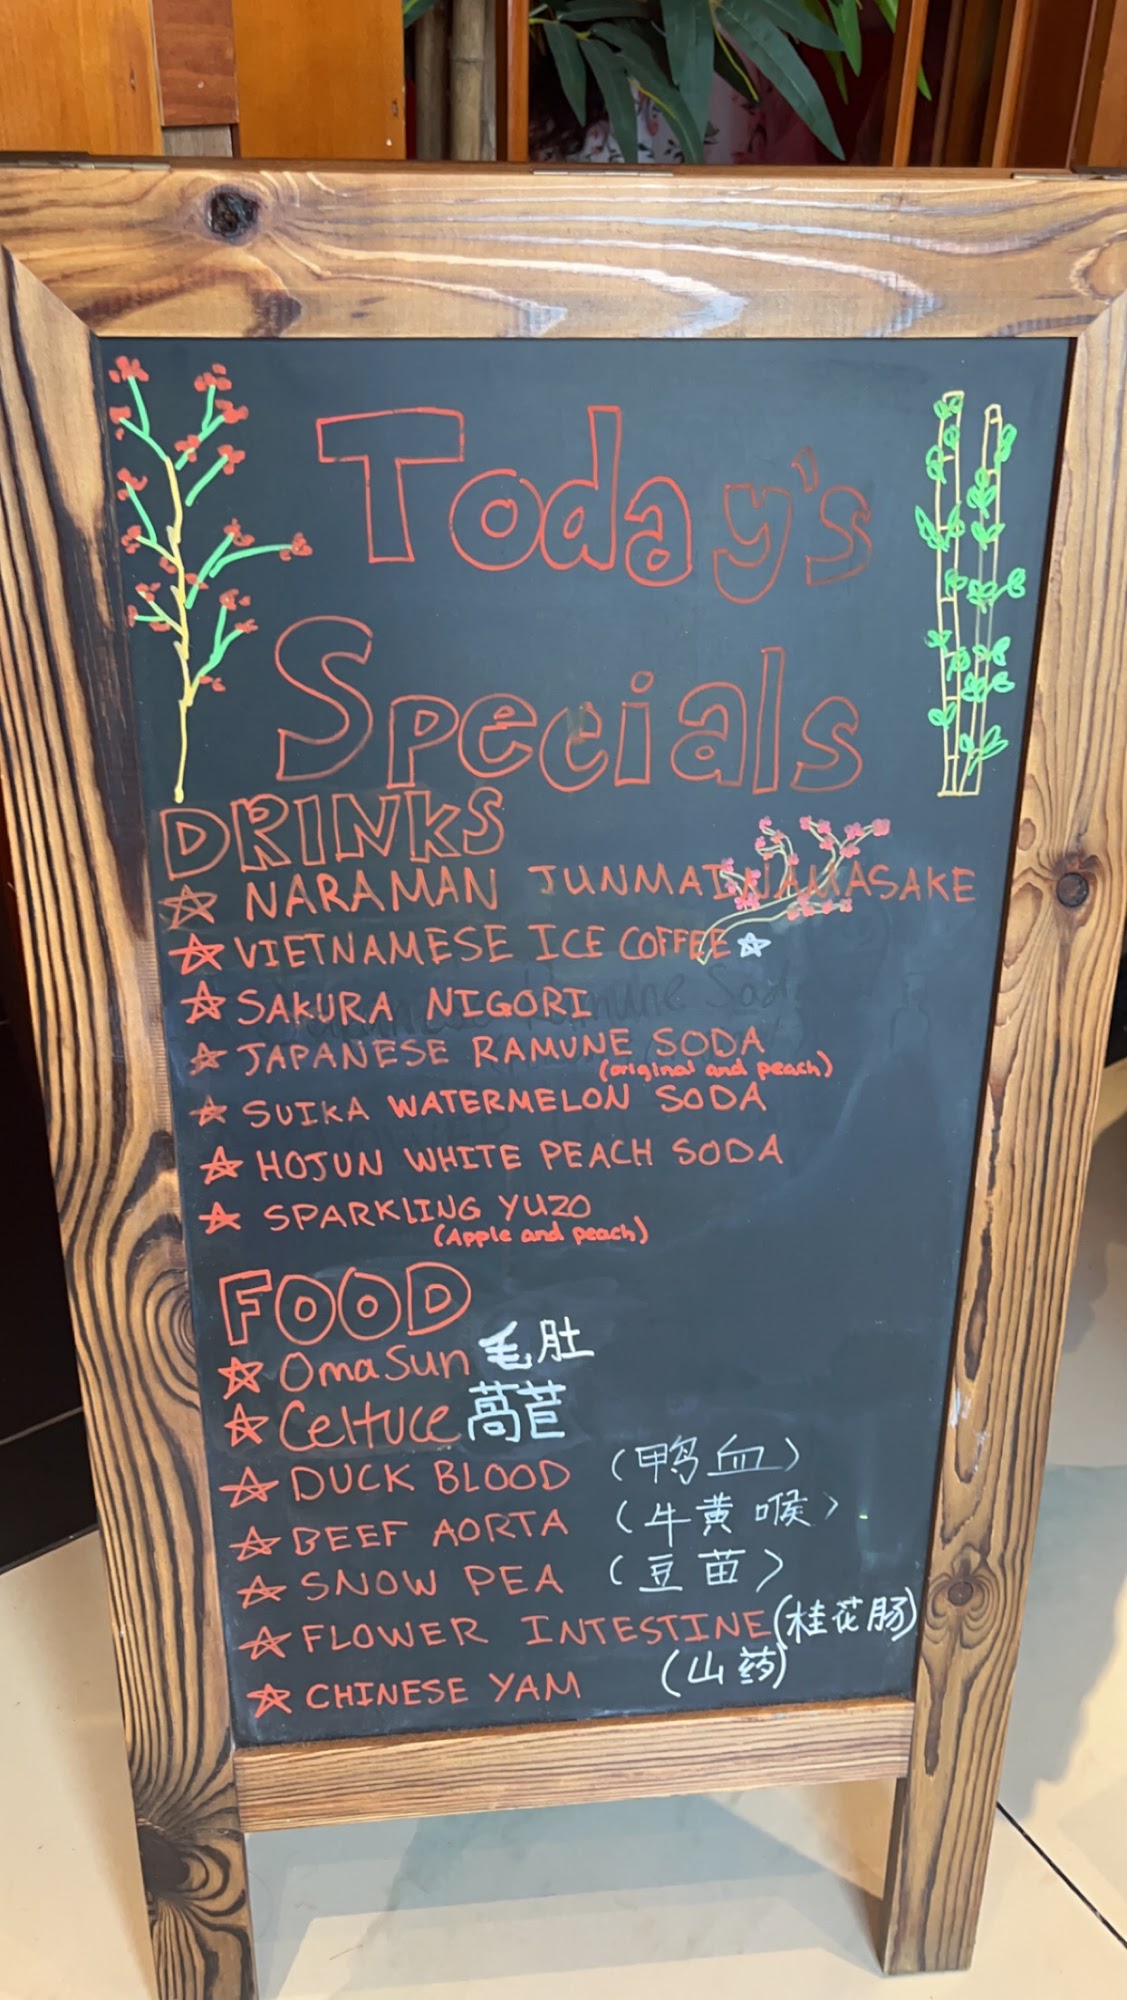 Today's
Specials
DRINKS
NARAMAN JUNMAI NAMASAKE
VIETNAMESE ICE COFFEE
SAKURA NIGORI
JAPANESE RAMUNE SODA
(original and peach)
SUIKA WATERMELON SODA
HOJUN WHITE PEACH SODA
SPARKLING YUZO
(Apple and peach)
FOOD
Omasun 毛肚
Celtuce 萵苣
DUCK BLOOD (鸭血)
BEEF AORTA (牛黄喉)
SNOW PEA (豆苗)
FLOWER INTESTINE (桂花肠)
CHINESE YAM (山药)